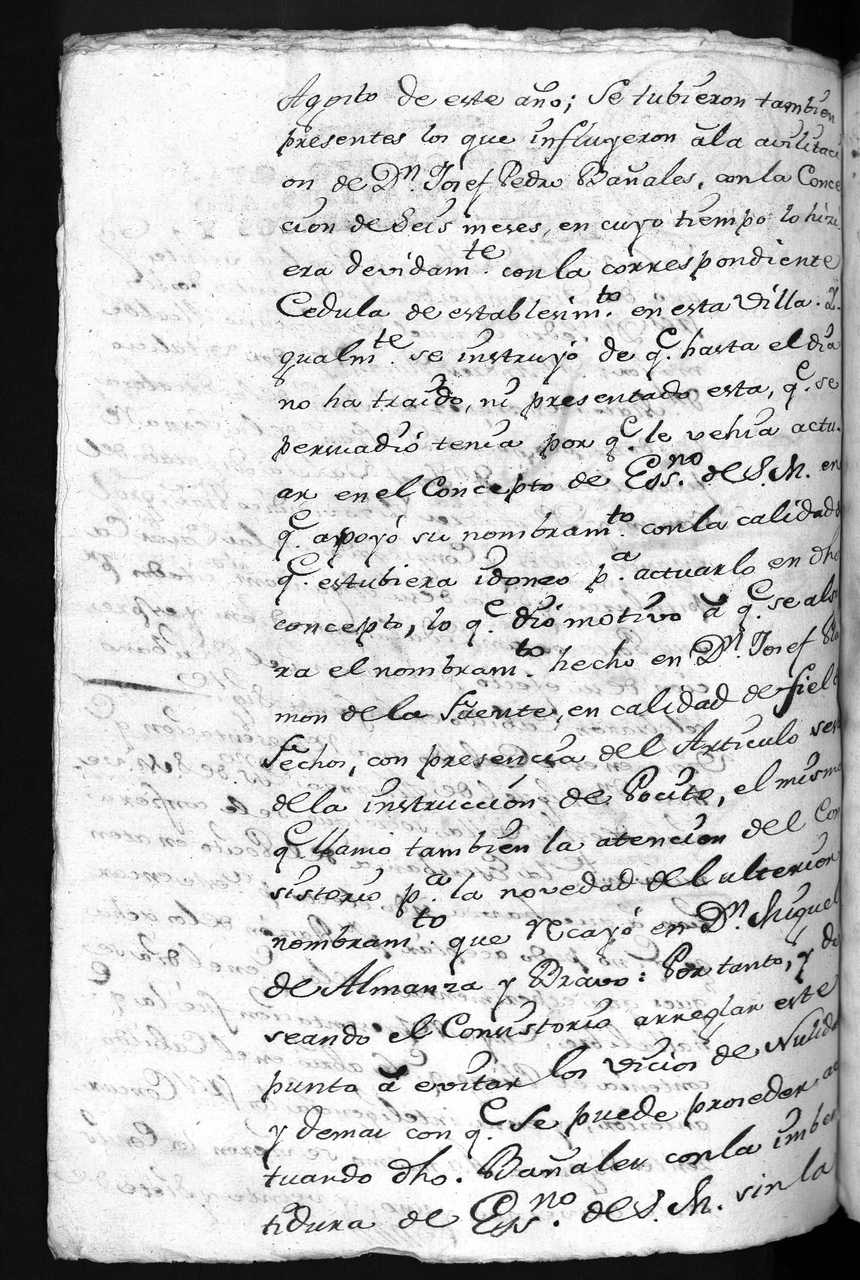 Agosto de este año; Se tubieron tambien
presentes los que influyeron ála avilitaci
on de Dn. Josef Pedro Bañales, con la Conce
cion de Seis meses, en cuyo tiempo lo hizi
era devidamte. con la correspondiente
Cedula de establesimto. en esta Villa. Y
gualmte. se instruyó de qe. hasta el dia
no ha traido, ni presentado esta, qe. se
persuadió tenia por qe. le vehia actu.
ar en el Concepto de Essno. de S. M. en
qe. apoyó su nombramto. con la calidad d
qe. estubiera idoneo pa. actuarlo en dho
concepto, lo qe. dió motivo á qe. se alte
ra el nombramto. hecho en Dn. Josef Ra
mon de la Fuente, en calidad de fiel d
fechos, con presencia del Articulo
de la instruccion de Pocito, el mismo
qe. llamó tambien la atencion del Con
sistorio pa. la novedad del ulterior
nombramto. que recayó en Dn. Miguel
de Almanza y Bravo: Por tanto, y de
seando el Consistorio arreglar este
punto á evitar los vicios de Nulida
y demas con qe. se puede proceder ac
tuando dho. Bañales con la imbes
tidura de Essno. de S. M. sin la